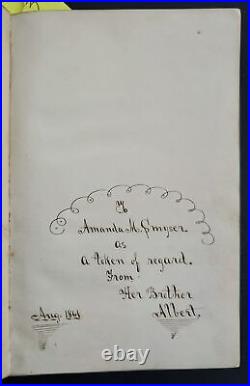 To
Amanda M. Smyser
as
a token of regard.
From
Her Brother
Albert.
Aug. 1841